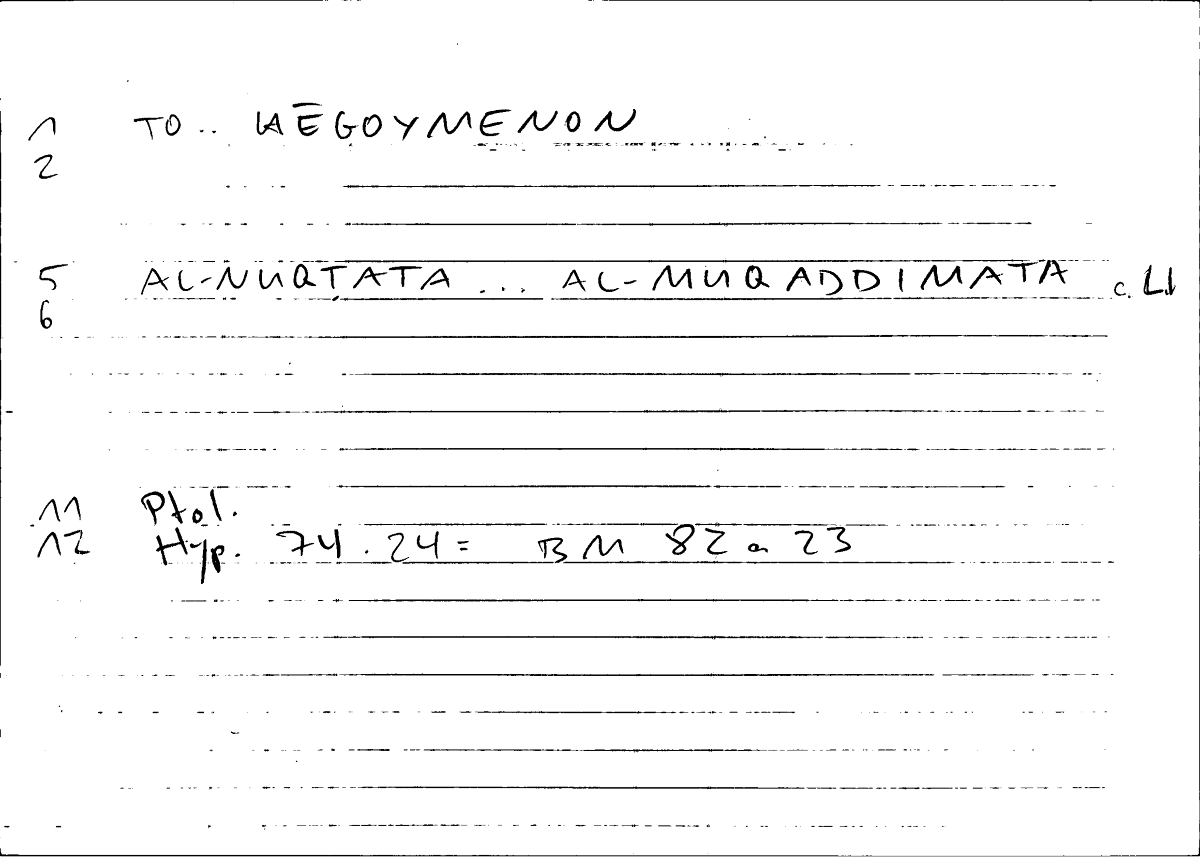 1 TO .. HĒGOYMENON
2
5 AL-NUQṬATA ... AL-MUQADDIMATA c. LI
6
11 Ptol.
12 Hyp. 74.24 = BM 82a23